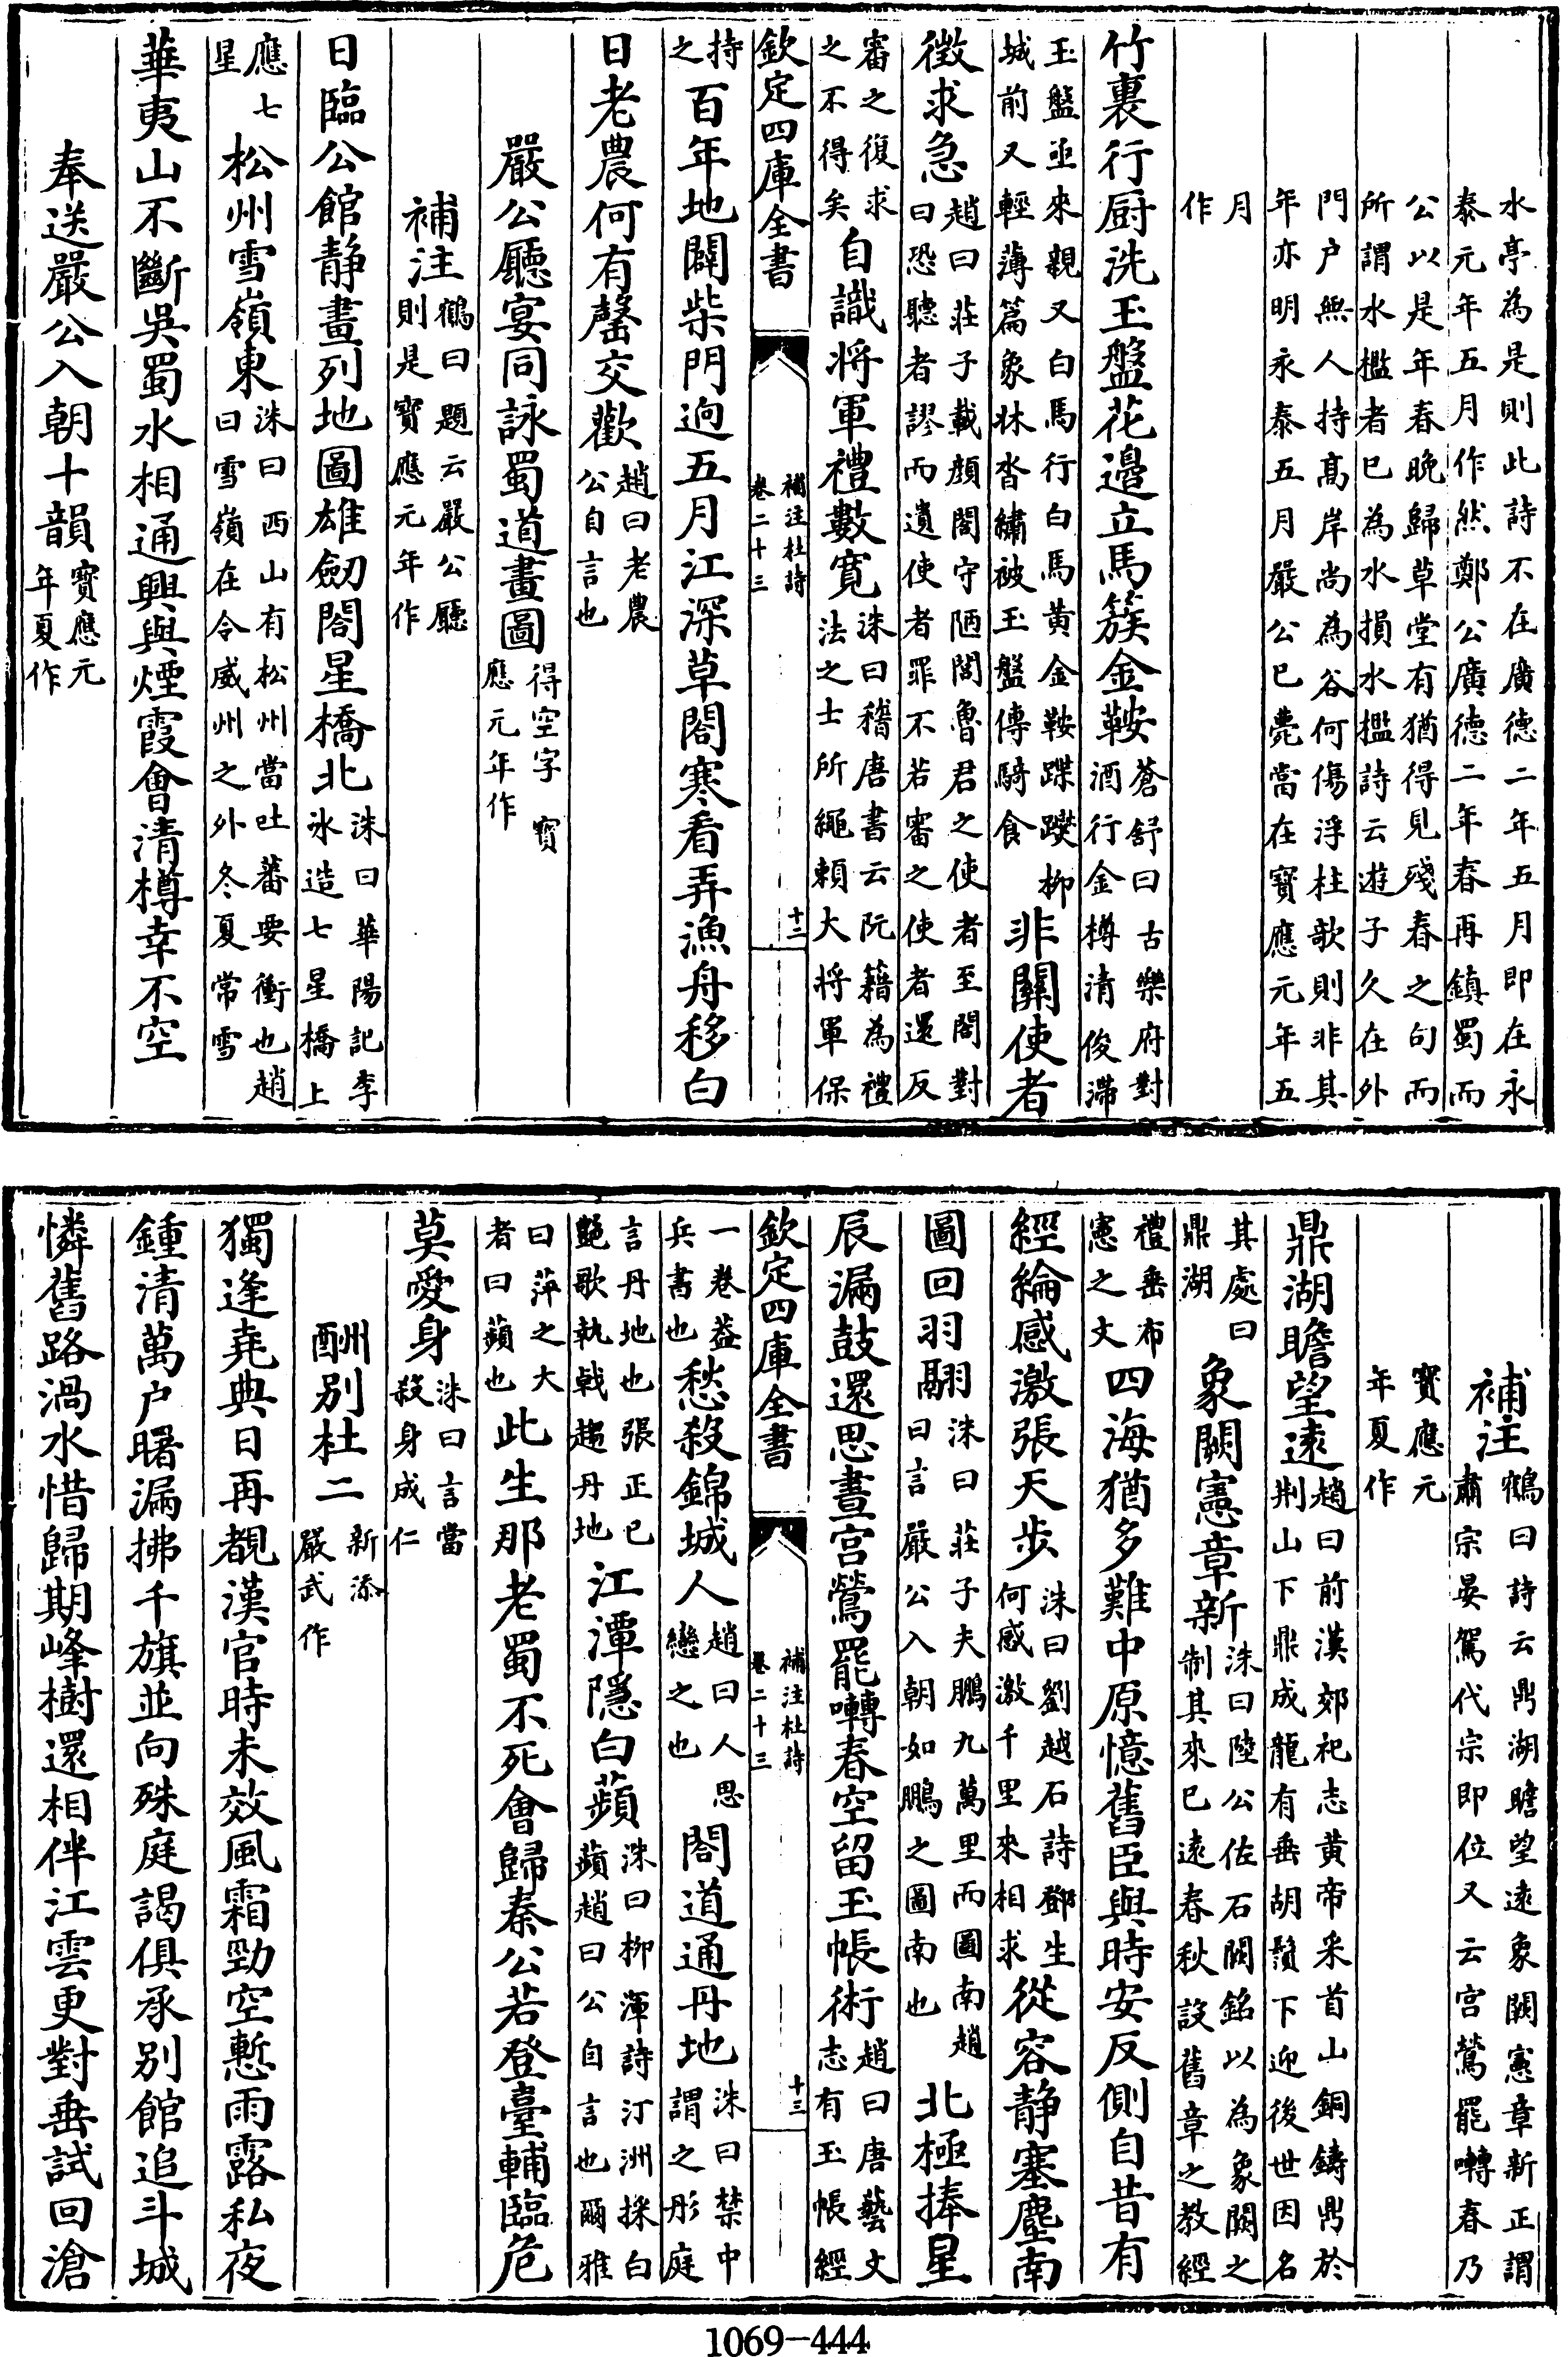 水亭為是則此詩不在廣德二年五月即在永
泰元年五月作然鄭公廣德二年春再鎮蜀而
公以是年春晚歸草堂有猶得見殘春之句而
所謂水檻者已為水損水檻詩云遊子久在外
門户無人持髙岸尚為谷何傷浮柱欹則非其
年亦明永泰五月嚴公已薨當在寳應元年五
月
作
竹裏行厨洗玉盤花邉立馬簇金鞍蒼舒曰古樂府對酒行金樽清俊滯
玉盤亟來親又白馬行白馬黄金鞍蹀躞栁城前又輕薄篇象牀沓繡被玉盤傳騎食非關使者
徴求急趙曰莊子載顔闔守陋閭魯君之使者至闔對曰恐聽者謬而遺使者罪不若審之使者還反
審之復求之不得矣自識将軍禮數寛洙曰稽唐書云阮籍為禮法之士所繩頼大将軍保
欽定四庫全書
補注杜詩
卷二十三
十二
持之百年地闢柴門逈五月江深草閣寒看弄漁舟移白
日老農何有罄交歡趙曰老農公自言也
嚴公廳宴同詠蜀道畫圖得空字 寳應元年作
補注鶴曰題云嚴公廳則是寳應元年作
日臨公館静畫列地圖雄劒閣星橋北洙曰華陽記李氷造七星橋上
應七星松州雪嶺東洙曰西山有松州當吐蕃要衝也趙曰雪嶺在令威州之外冬夏常雪
華夷山不斷吳蜀水相通興與煙霞會清樽幸不空
奉送嚴公入朝十韻寳應元年夏作
補注鶴曰詩云鼎湖瞻望逺象闕憲章新正謂肅宗晏駕代宗即位又云宫鶯罷囀春乃
寳應元
年夏作
鼎湖瞻望逺趙曰前漢郊祀志黄帝采首山銅鑄鼎於荆山下鼎成龍有垂胡髯下迎後世因名
其處曰鼎湖象闕憲章新洙曰陸公佐石闕銘以為象闕之制其來已逺春秋設舊章之教經
禮垂布憲之文四海猶多難中原憶舊臣與時安反側自昔有
經綸感激張天步洙曰劉越石詩鄧生何感激千里來相求從容静塞塵南
圖回羽翮洙曰莊子夫鵬九萬里而圖南趙曰言嚴公入朝如鵬之圖南也北極捧星
辰漏鼓還思晝宫鶯罷囀春空留玉帳術趙曰唐藝文志有玉帳經
欽定四庫全書
補注杜詩
卷二十三
十三
一卷葢兵書也愁殺錦城人趙曰人思戀之也閣道通丹地洙曰禁中謂之彤庭
言丹地也張正已艶歌執戟趨丹地江潭隱白蘋洙曰栁渾詩汀洲採白蘋趙曰公自言也爾雅
曰萍之大者曰蘋也此生那老蜀不死會歸秦公若登臺輔臨危
莫愛身洙曰言當殺身成仁
酬别杜二新添嚴武作
獨逢堯典日再覩漢官時未效風霜勁空慙雨露私夜
鍾清萬户曙漏拂千旗並向殊庭謁俱承别館追斗城
憐舊路渦水惜歸期峰樹還相伴江雲更對垂試回滄
1069-444